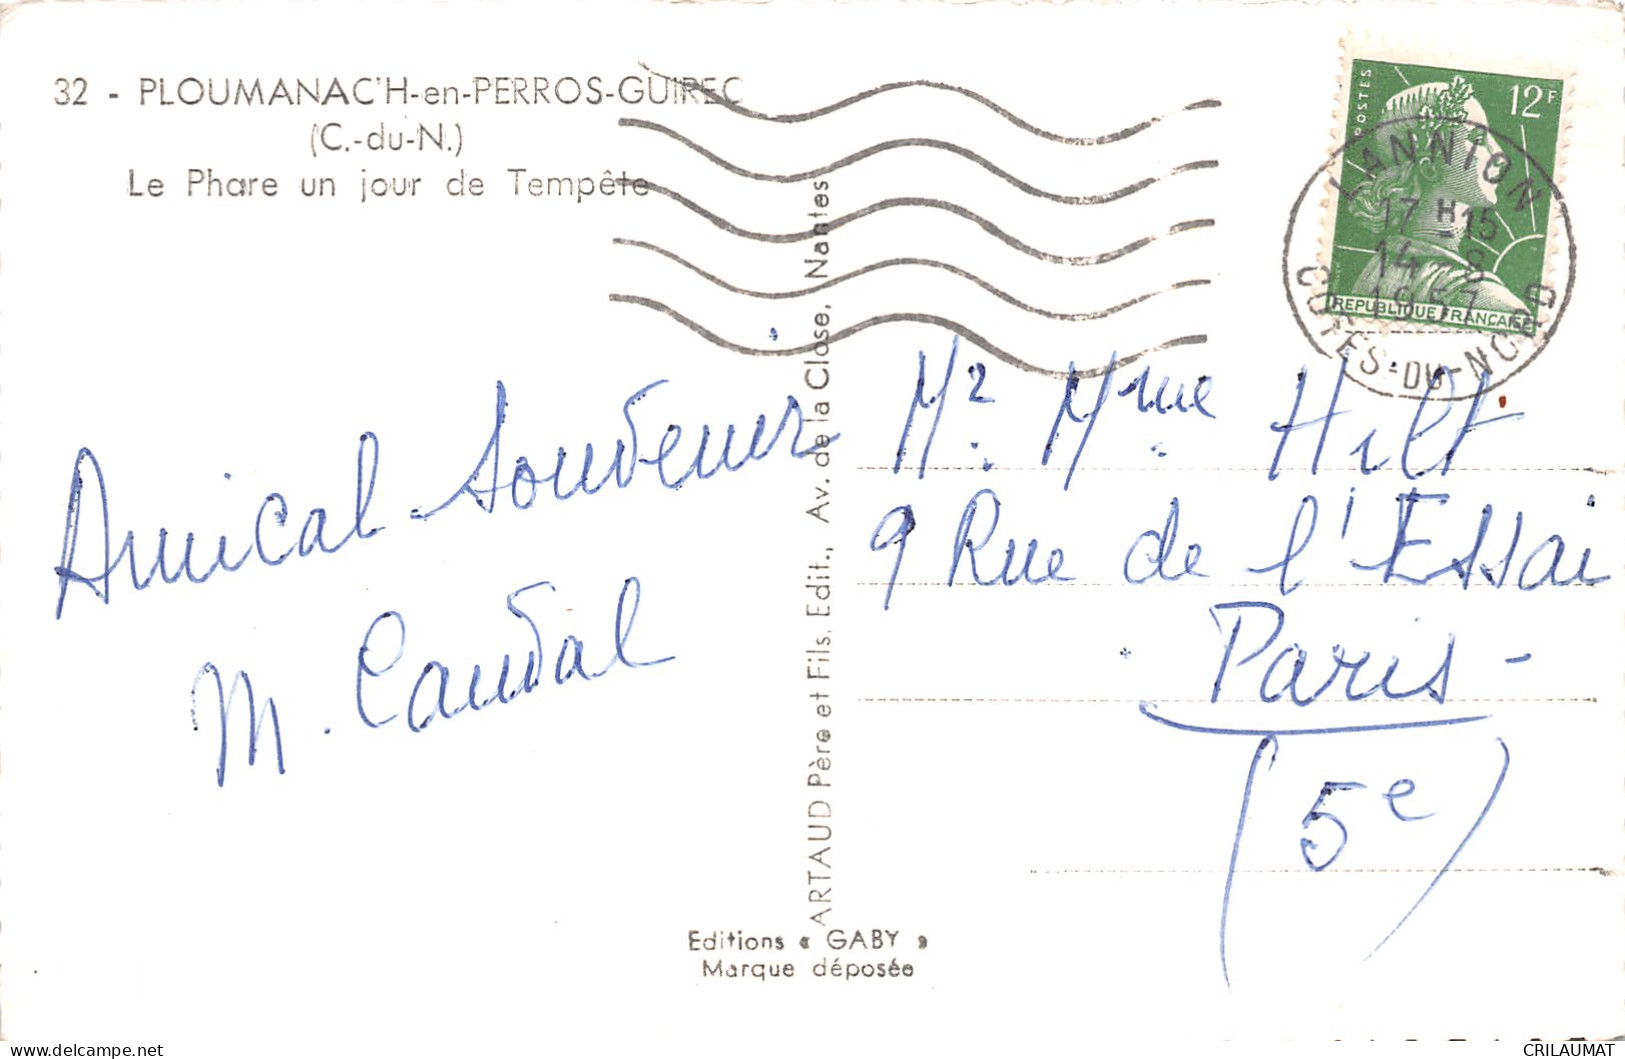 32 - PLOUMANAC'H-en-PERROS-GUIREC
(C.-du-N.)
Le Phare un jour de Tempête
POSTES
12F
REPUBLIQUE FRANÇAISE
LANNION
17 H 15
14 - 8
1957
COTES-DU-NORD
Amical Souvenir
M. Caudal
ARTAUD Père et Fils, Edit., Av. de la Close, Nantes
Mr. Mme Hilt
9 Rue de l'Essai
Paris -
(5e)
Editions « GABY »
Marque déposée
delcampe.net
CRILAUMAT